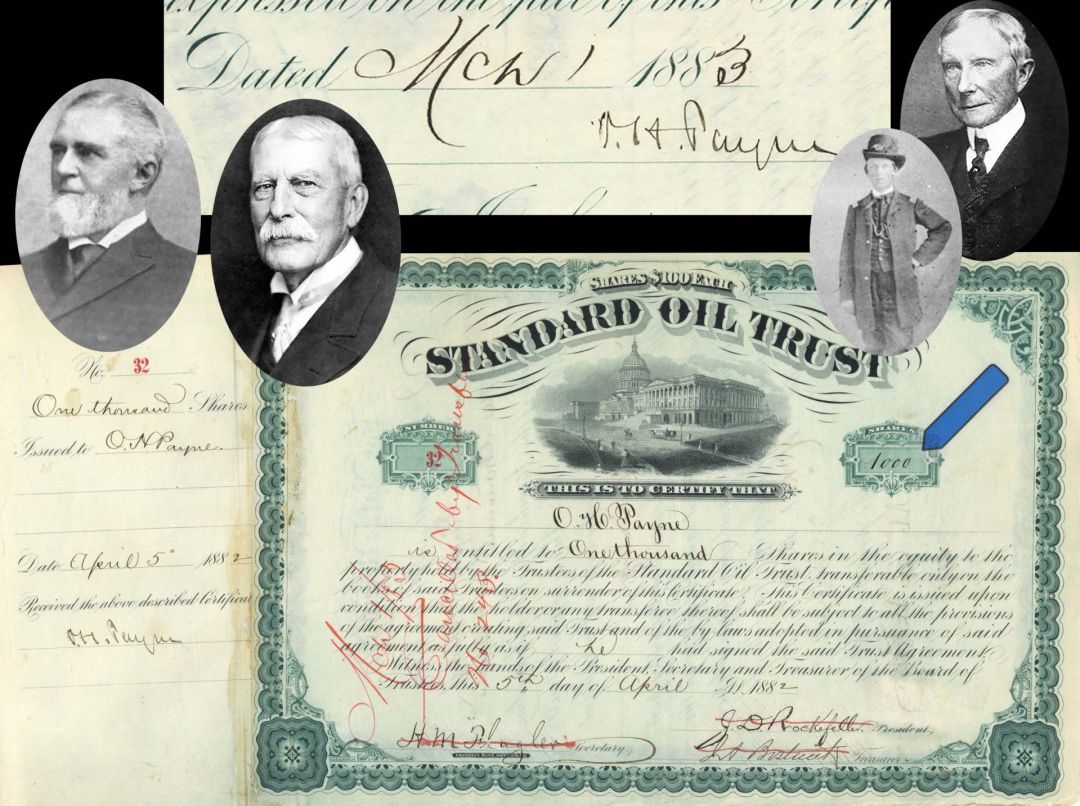 expressed on the face of this Certifi
Dated Mch 1 1883
O.H. Payne
No. 32
One thousand Shares
Issued to O.H. Payne.
Date April 5" 1882
Received the above described Certificat
O.H. Payne
SHARES $100 EACH
STANDARD OIL TRUST
NUMBER
32
SHARES
1000
THIS IS TO CERTIFY THAT
O.H. Payne
is entitled to One thousand Shares in the equity to the
property held by the Trustees of the Standard Oil Trust, transferable only on the
books of said Trustees on surrender of this Certificate. This Certificate is issued upon
condition that the holder or any transferee thereof shall be subject to all the provisions
of the agreement creating said Trust and of the by-laws adopted in pursuance of said
agreement as fully as if he had signed the said Trust Agreement.
Witness the hands of the President, Secretary and Treasurer of the Board of
Trustees, this 5th day of April A.D. 1882
Cancelled by Transfer
H.M. Flagler Secretary,
J.D. Rockefeller President,
J.A. Bostwick Treasurer.